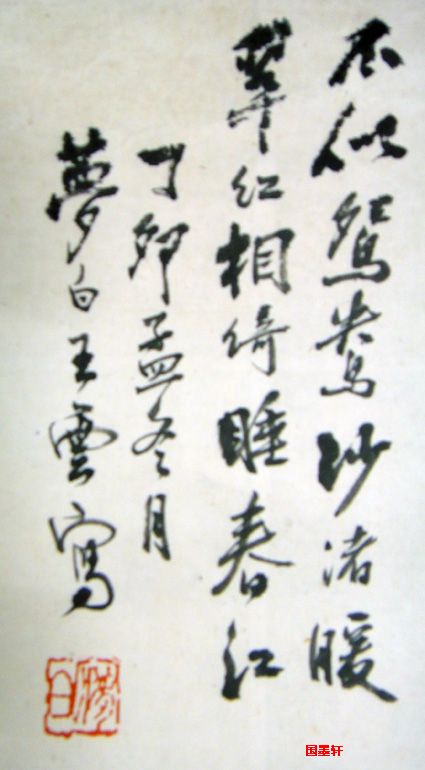 不似鴛鴦沙渚暖
翠紅相倚睡春江
丁卯孟冬月
夢白王雲寫
夢白
国墨轩